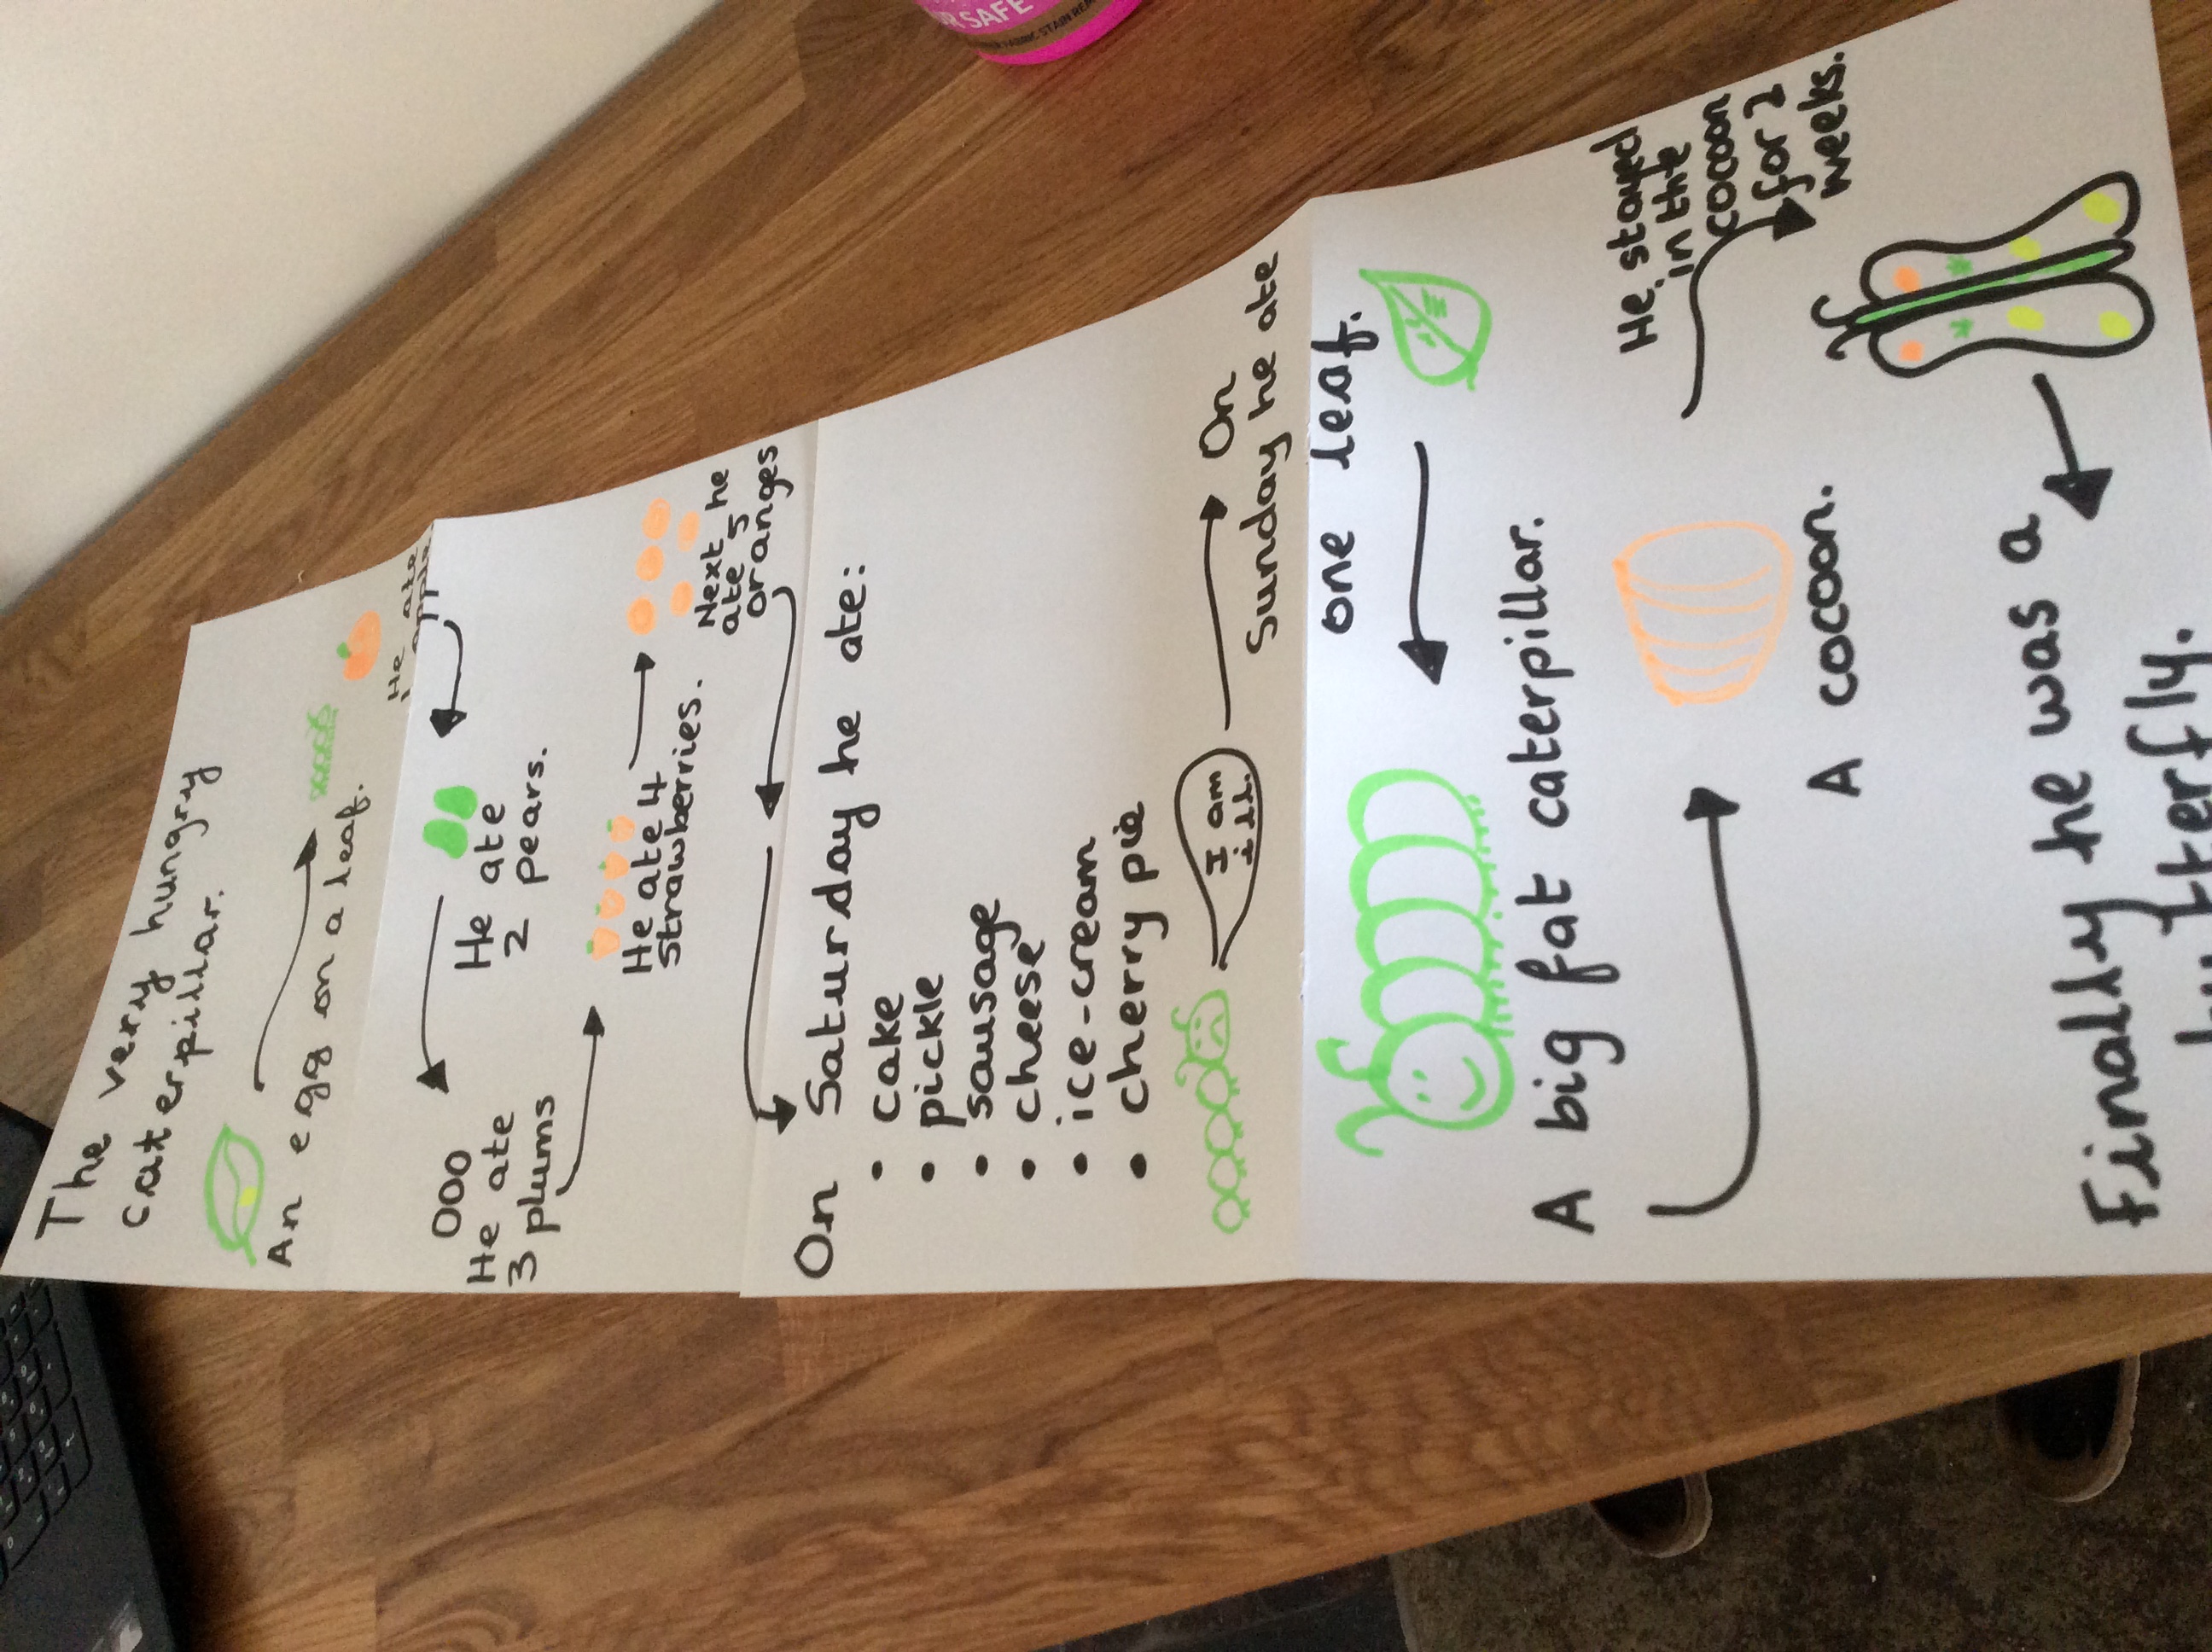 The very hungry
caterpillar.
An egg on a leaf.
He ate
apple
He ate
2 pears.
He ate
3 plums
He ate 4
strawberries.
Next he
ate 5
oranges
On Saturday he ate:
• cake
• pickle
• sausage
• cheese
• ice-cream
• cherry pie
I am
ill.
On
Sunday he ate
one leaf.
A big fat caterpillar.
A cocoon.
He stayed
in the
cocoon
for 2
weeks.
Finally he was a
butterfly.
SAFE
FABRIC STAIN